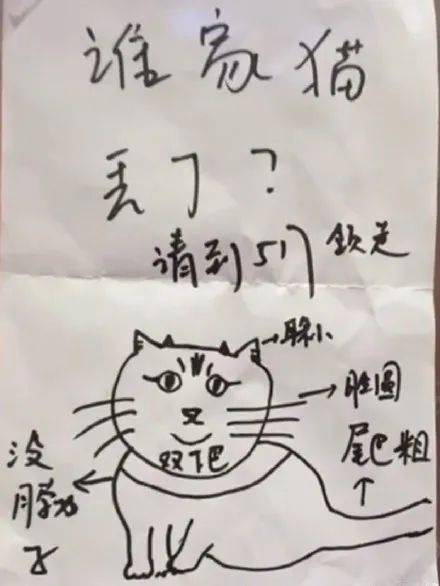 谁家猫
丢了?
请到517领走
耳朵小
脸圆
双下巴
尾巴粗
没
脖
子